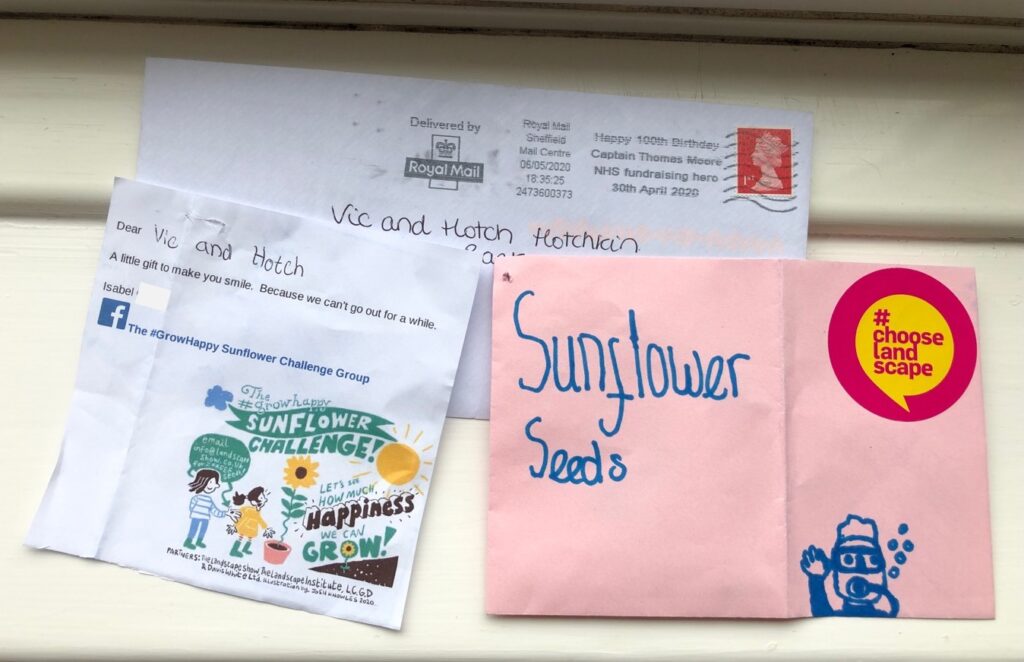 Delivered by
Royal Mail
Royal Mail
Sheffield
Mail Centre
06/05/2020
18:35:25
2473600373
Happy 100th Birthday
Captain Thomas Moore
NHS fundraising hero
30th April 2020
1st
Vic and Hotch Hotchkin
Dear Vic and Hotch
A little gift to make you smile. Because we can't go out for a while.
Isabel
f The #GrowHappy Sunflower Challenge Group
The
#growhappy
SUNFLOWER
CHALLENGE!
email
info@landscape
show.co.uk
for
seeds!
LET'S SEE
HOW MUCH
HAPPINESS
WE CAN
GROW!
PARTNERS: THE LANDSCAPE SHOW, THE LANDSCAPE INSTITUTE, L.C.G.D
& Davis White Ltd. ILLUSTRATION by JOSH KNOWLES 2020.
Sunflower
Seeds
#
choose
land
scape